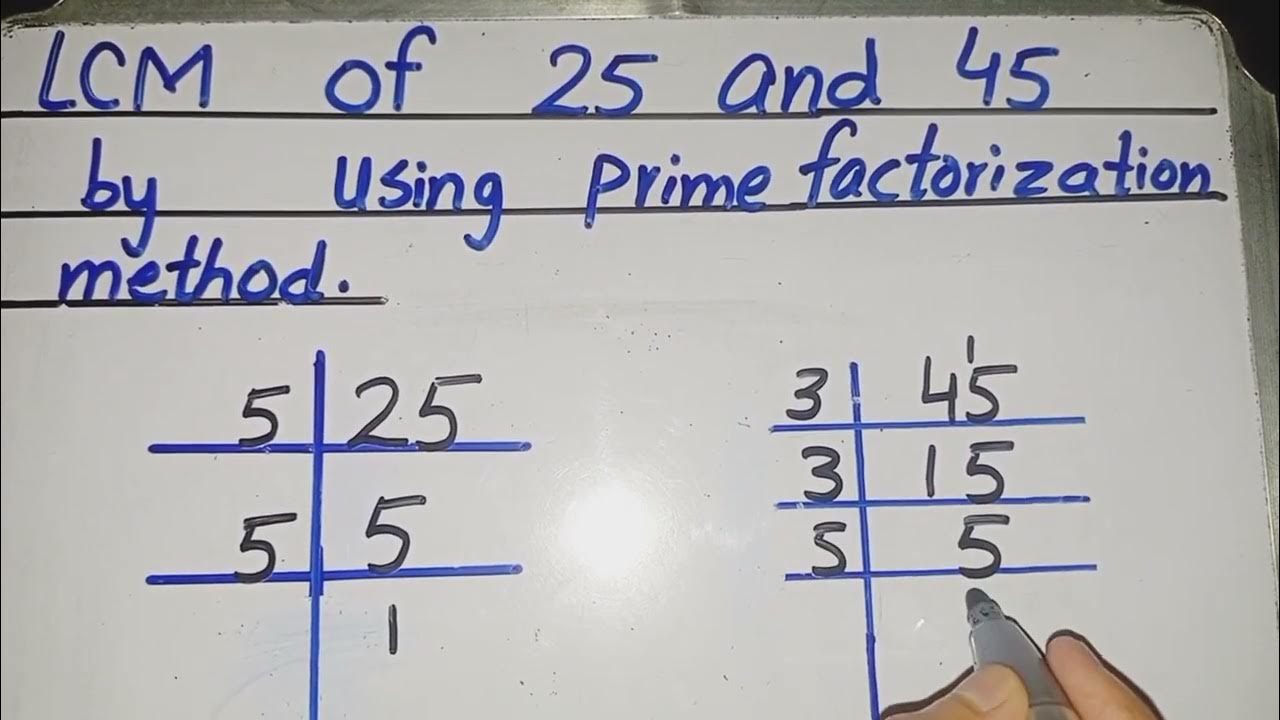 LCM of 25 and 45
by using prime factorization
method.
5 25
5 5
1
3 45
1
3 15
5 5